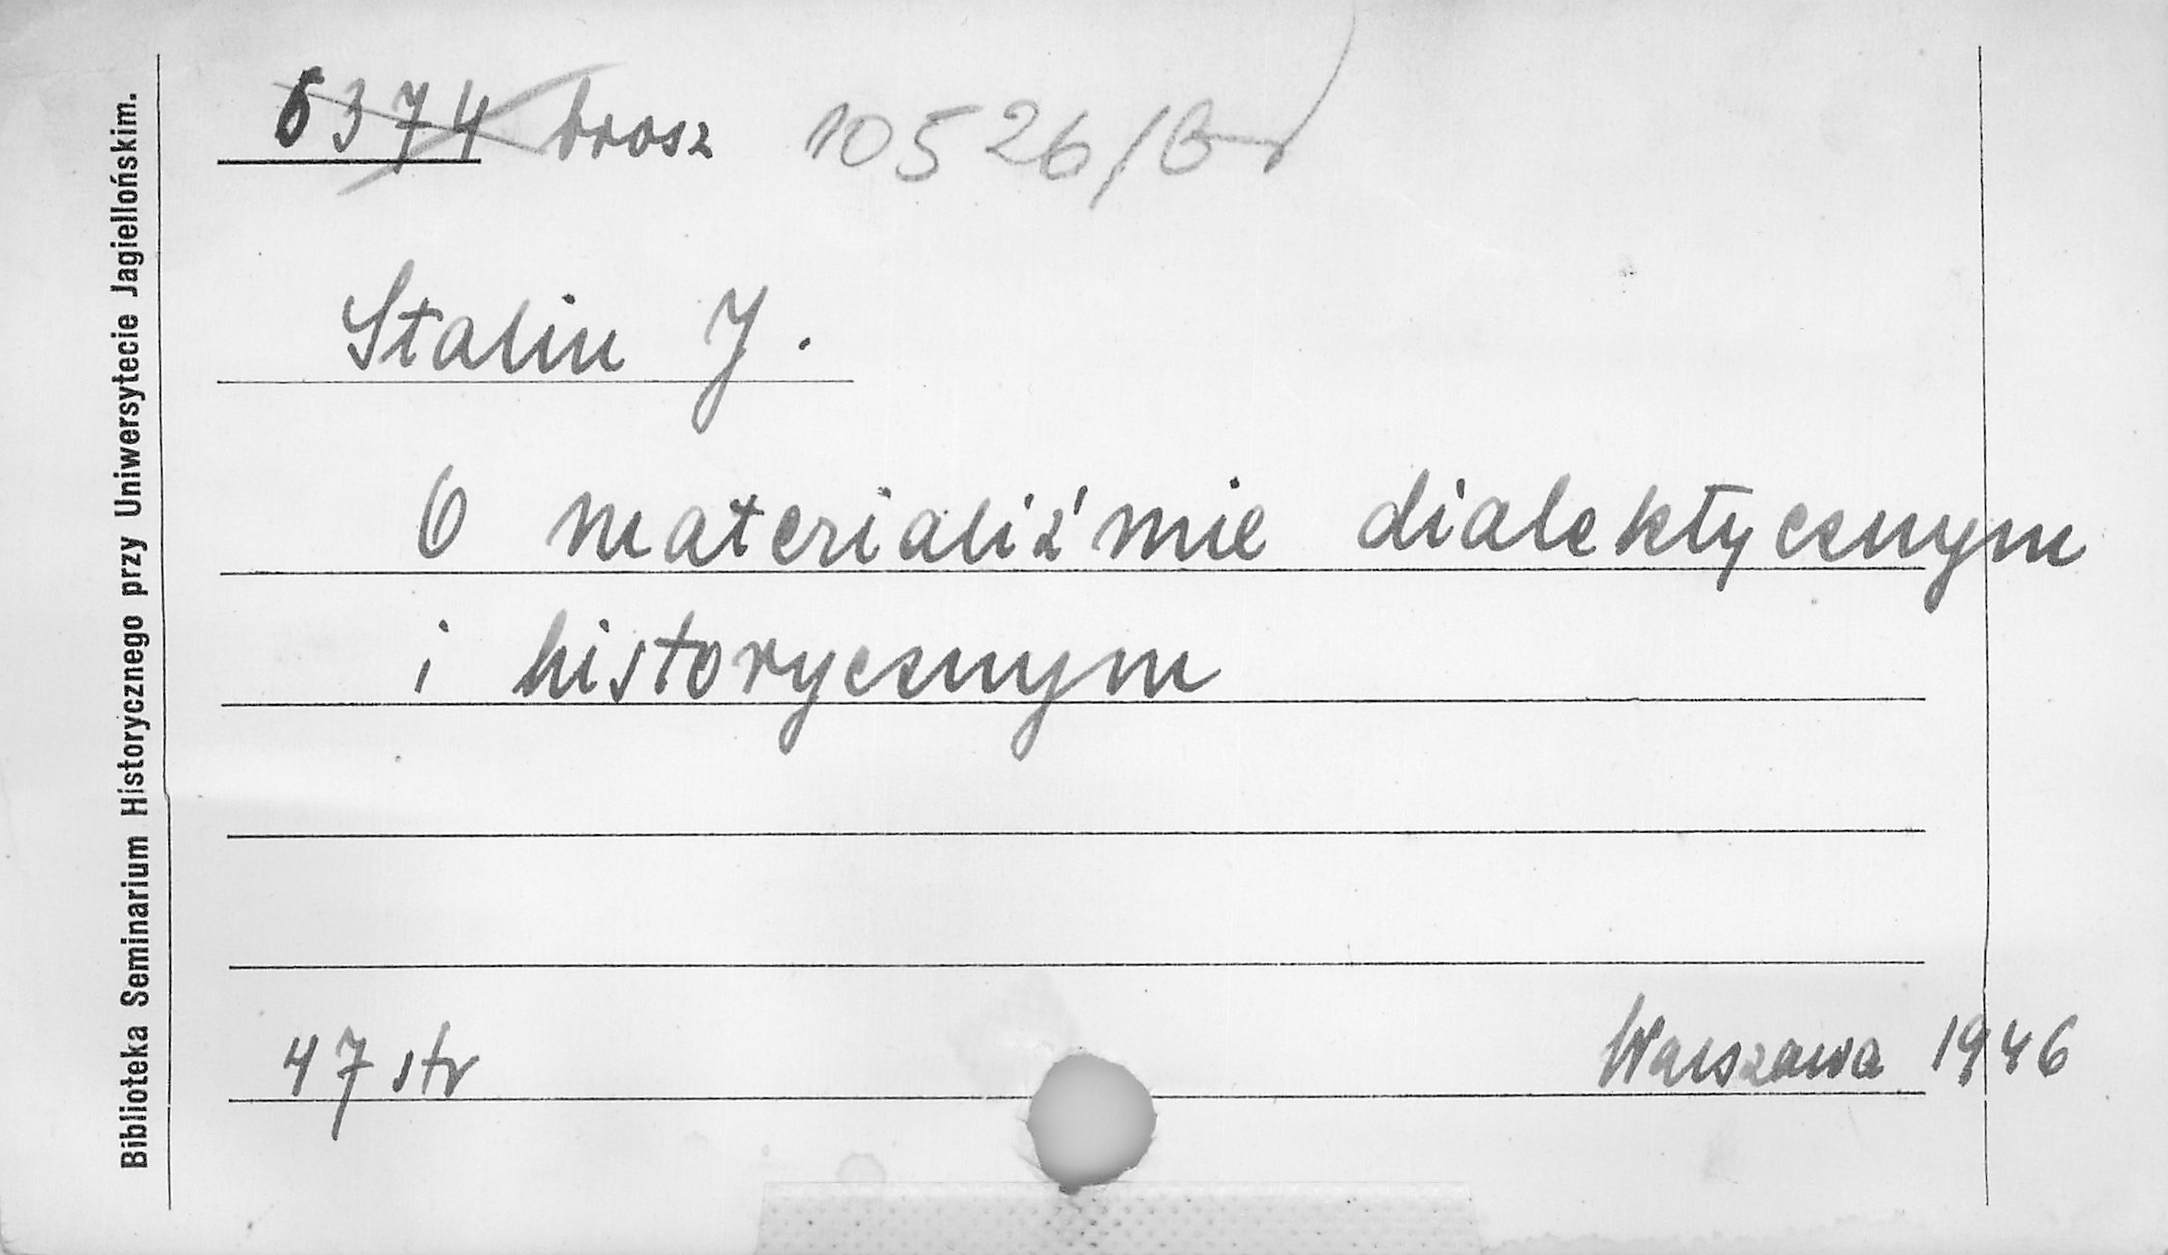 Biblioteka Seminarium Historycznego przy Uniwersytecie Jagiellońskim.
6374 brosz 10526/Br
Stalin J.
O materialiźmie dialektycznym
i historycznym
47 str
Warszawa 1946